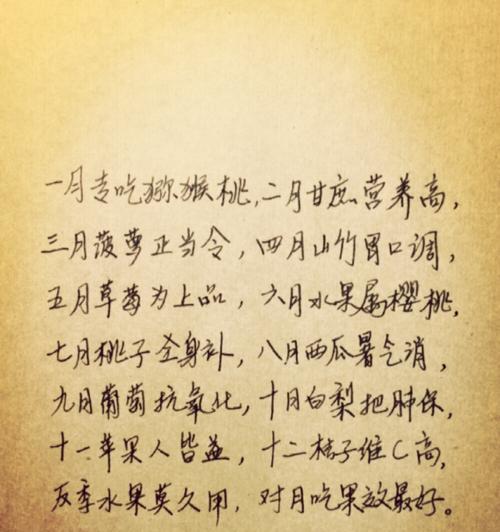 一月专吃猕猴桃,二月甘庶营养高,
三月菠萝正当令,四月山竹胃口调,
五月草莓为上品,六月水果属樱桃,
七月桃子全身补,八月西瓜暑气消,
九月葡萄抗氧化,十月白梨把肺保,
十一苹果人皆益,十二桔子维C高,
反季水果莫久用,对月吃果效最好。